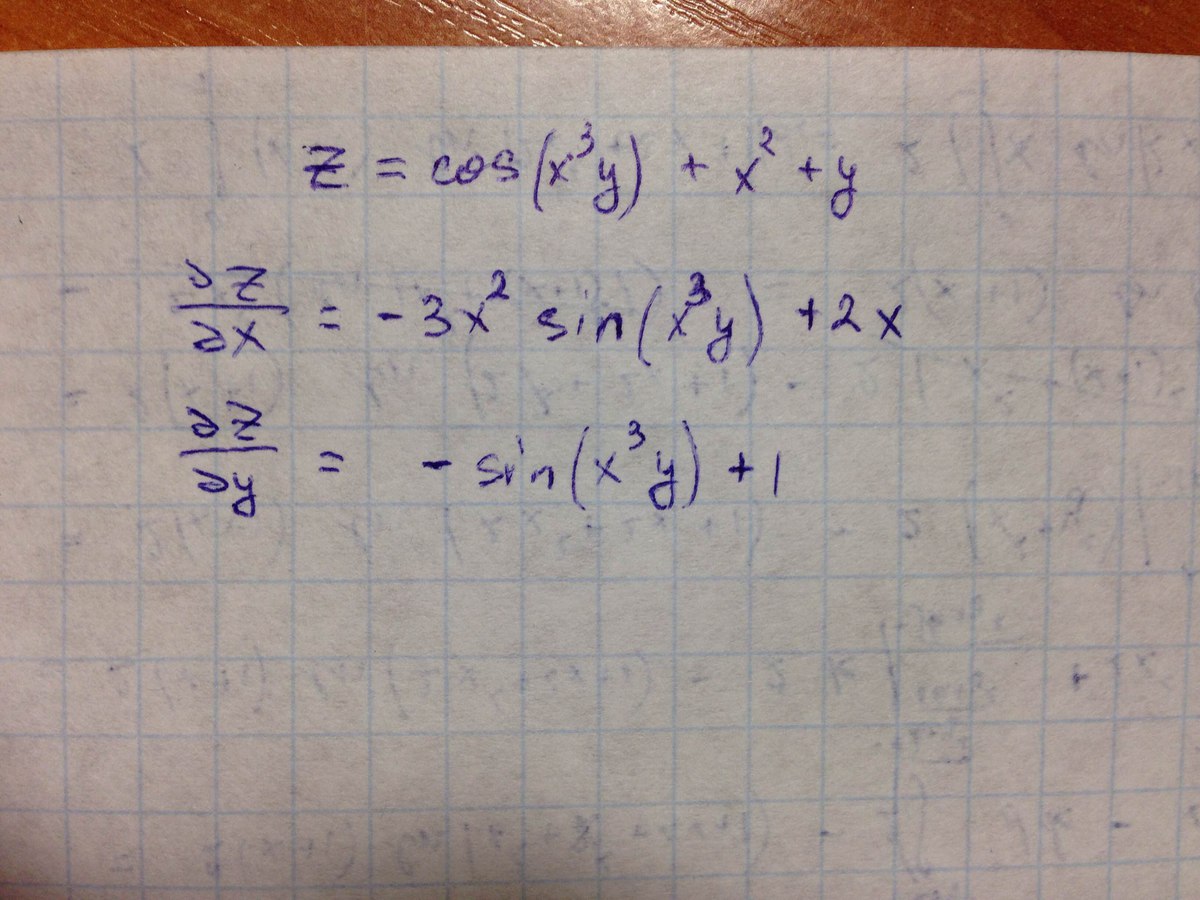 z = cos(x³y) + x² + y
∂z/∂x = -3x² sin(x³y) + 2x
∂z/∂y = - sin(x³y) + 1